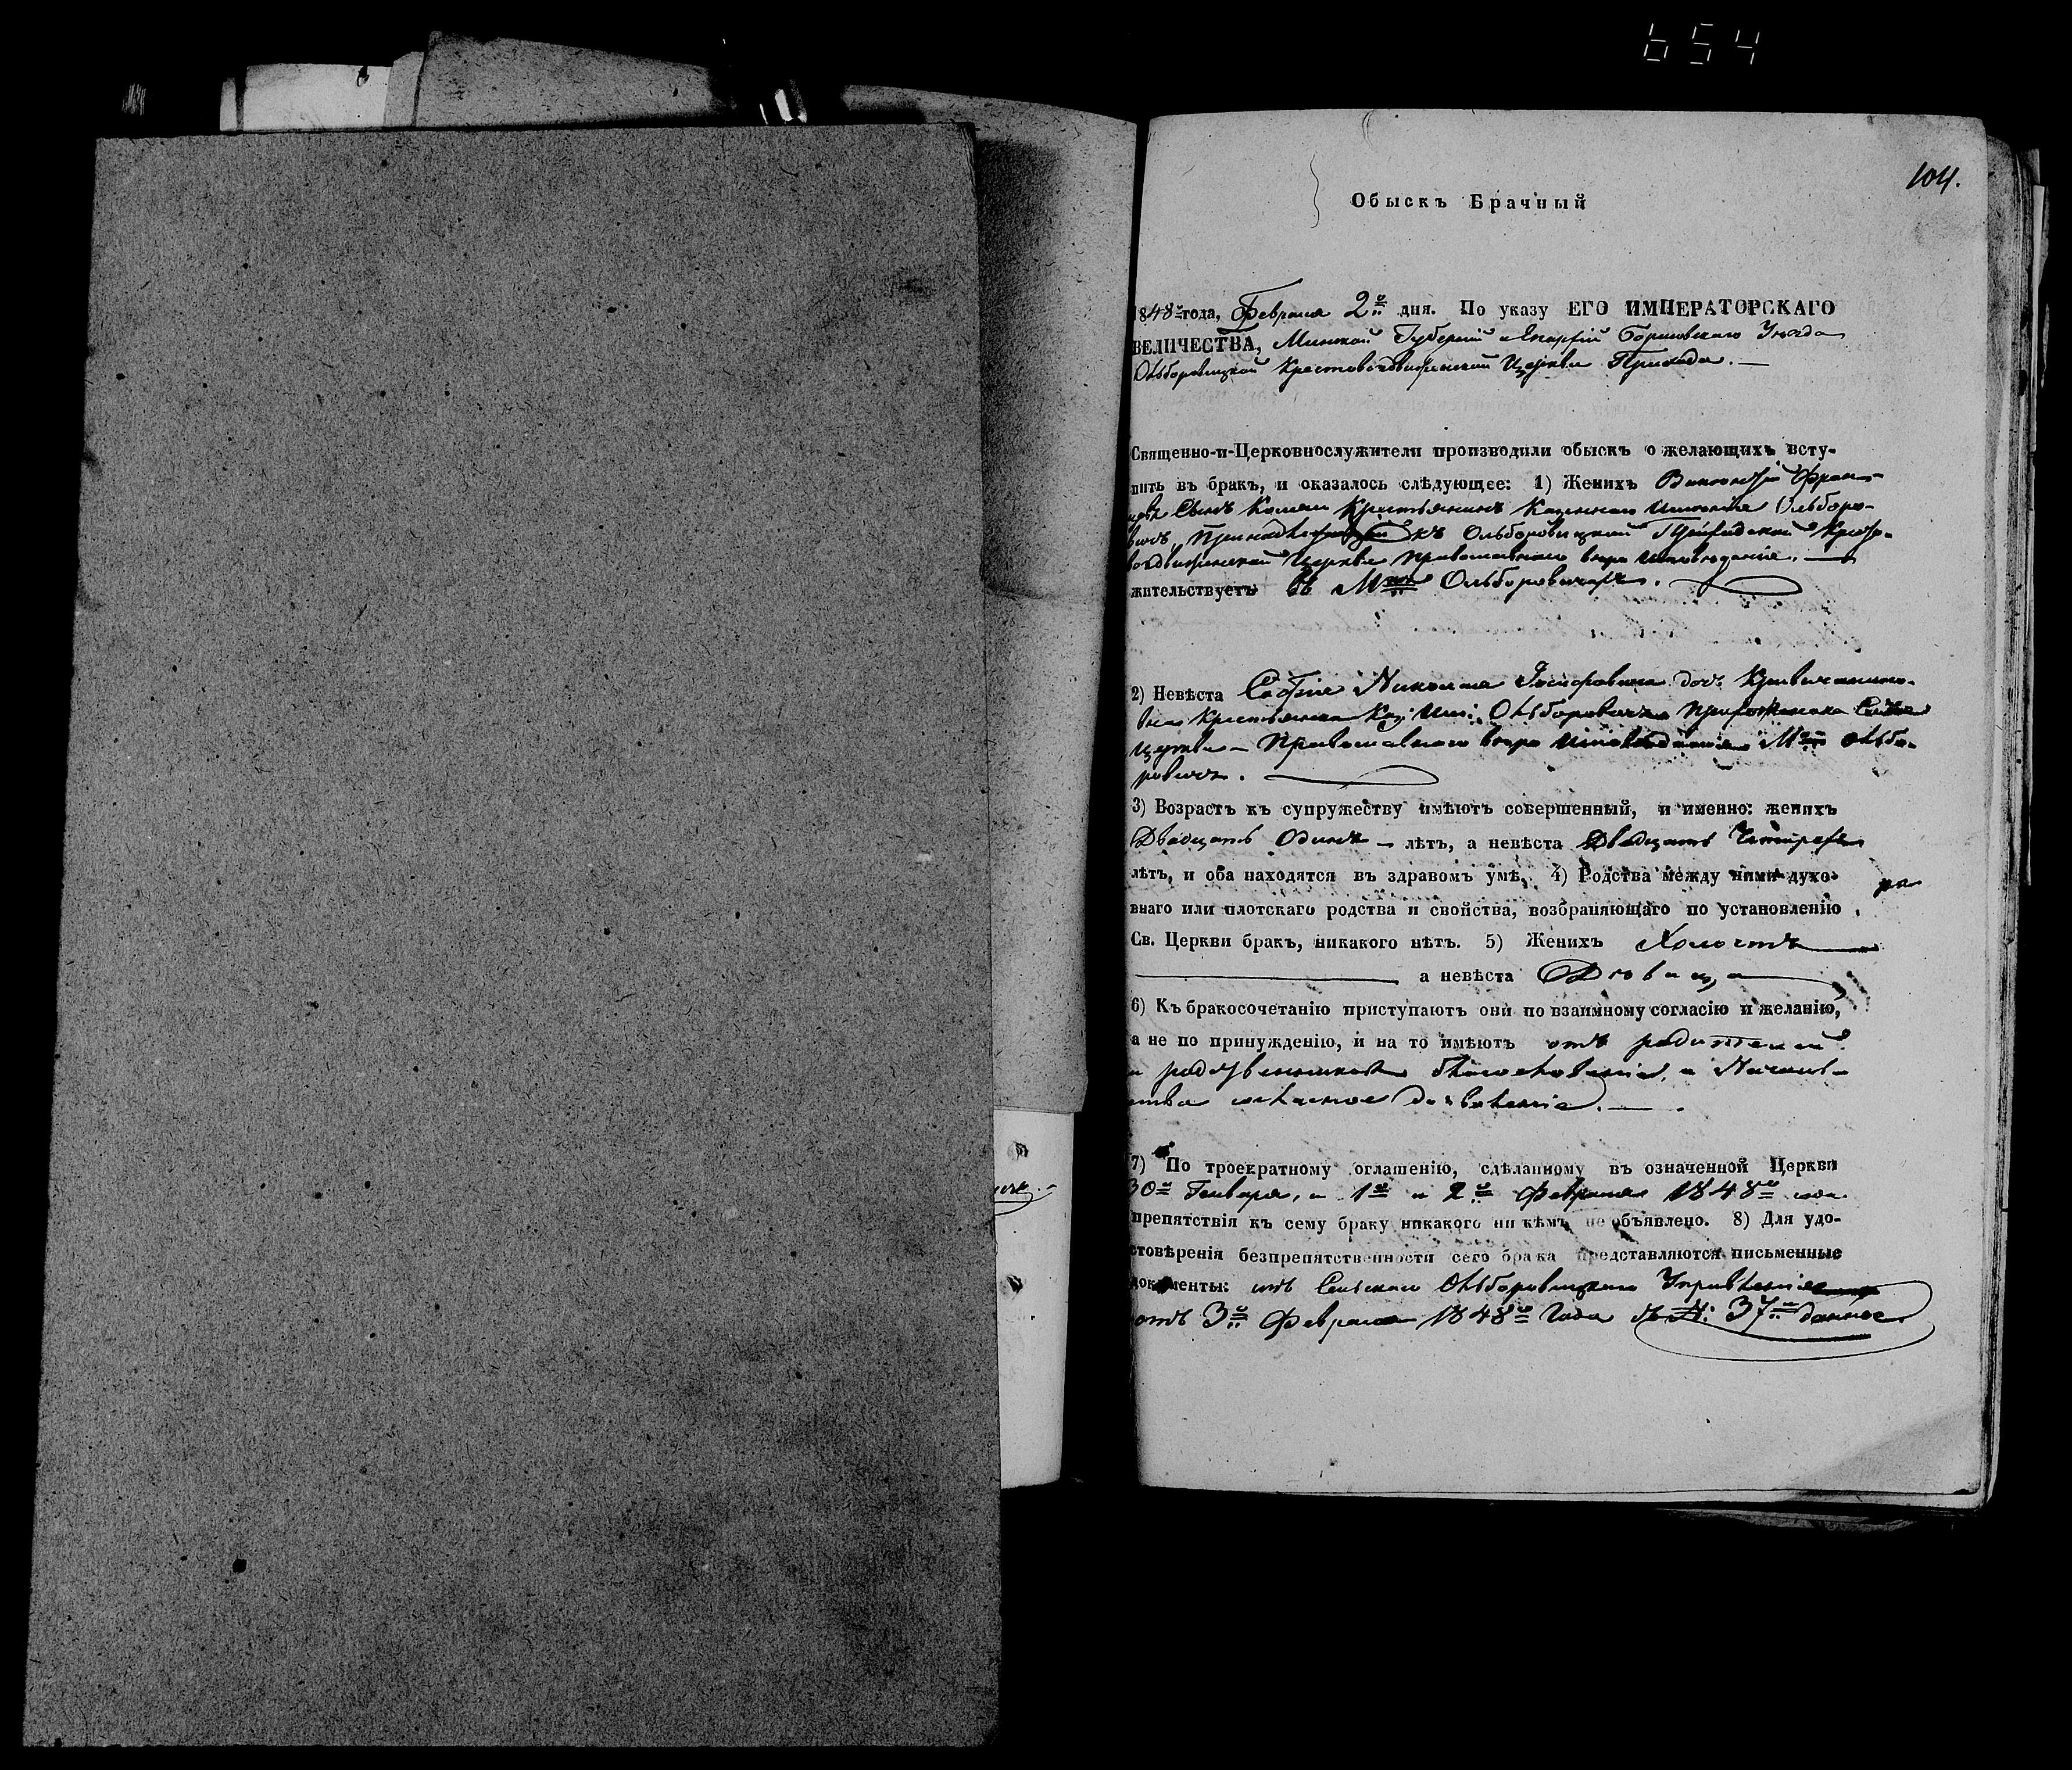 654
104.
Обыскъ Брачный
1848го года, Февраля 2го дня. По указу ЕГО ИМПЕРАТОРСКАГО
ВЕЛИЧЕСТВА, Минской Губерніи и Епархіи Борисовскаго Уѣзда
Ольборовицкой Крестовоздвиженской Церкви Прихода. —
Священно-и-Церковнослужители производили обыскъ о желающихъ всту-
пить въ бракъ, и оказалось слѣдующее: 1) Женихъ
Сынъ Крестьянинъ Казеннаго Имѣнія Ольборо-
къ Ольборовицкой
Церкви Православнаго вѣро исповѣданія. —
жительствуетъ въ Ольборовичахъ.
2) Невѣста Софія
Крестьянка Каз: Им: Ольборовичъ Прихожанка
Церкви — Православнаго вѣро исповѣданія Ольбо-
ровичъ.
3) Возрастъ къ супружеству имѣютъ совершенный, и именно: женихъ
Двадцать Одинъ — лѣтъ, а невѣста Двадцать
лѣтъ, и оба находятся въ здравомъ умѣ, 4) Родства между ними духо-
внаго или плотскаго родства и свойства, возбраняющаго по установленію
Св. Церкви бракъ, никакого нѣтъ. 5) Женихъ Холостъ
а невѣста Дѣвица
6) Къ бракосочетанію приступаютъ они по взаимному согласію и желанію,
а не по принужденію, и на то имѣютъ отъ родителей
и родственниковъ благословеніе, и Началь-
ства дозволеніе. —
7) По троекратному оглашенію, сдѣланному въ означенной Церкви
30го Генваря, и 1го и 2го Февраля 1848го года
препятствія къ сему браку никакого ни кѣмъ не объявлено. 8) Для удо-
стовѣренія безпрепятственности сего брака представляются письменные
документы: отъ Сельскаго Ольборовицкаго Управленія
отъ 3го Февраля 1848го года за N: 37м данное